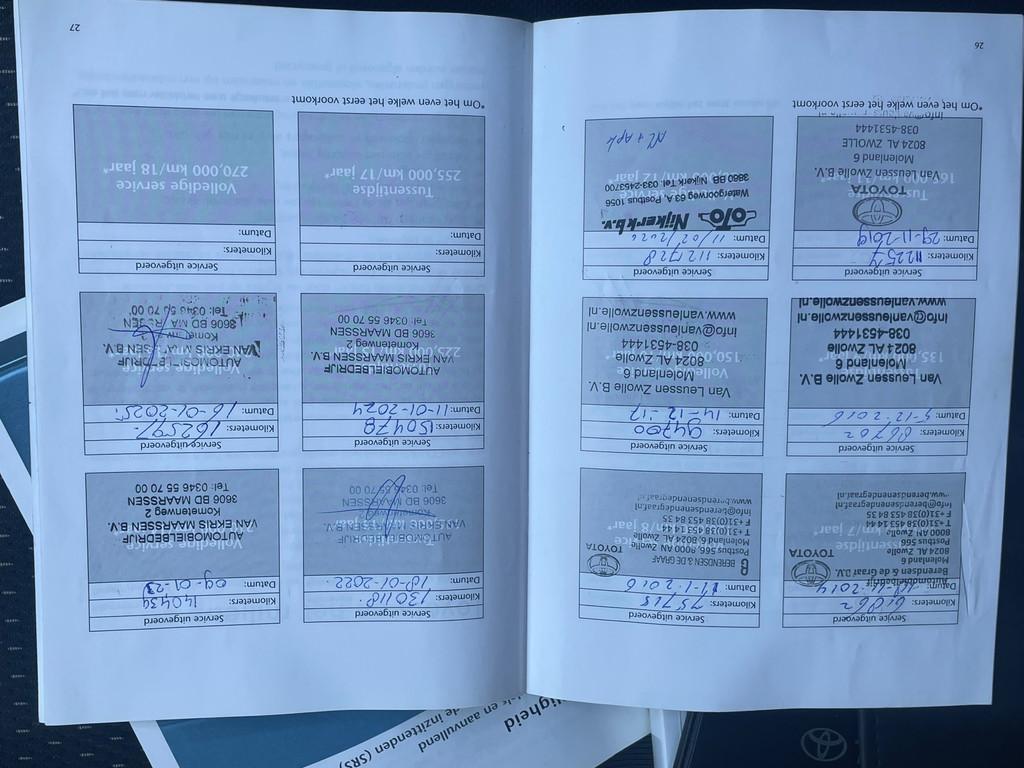 Service uitgevoerd
Kilometers: 61862
Datum: 2014
Automobielbedrijf
Berendsen & de Graaf B.V.
Molenland 6
8024 AL Zwolle
Postbus 566
8000 AN Zwolle
T +31(0)38 453 14 44
F +31(0)38 453 84 35
info@berendsendegraaf.nl
www.berendsendegraaf.nl
TOYOTA
Service uitgevoerd
Kilometers: 75715
Datum: 11-1-2016
BERENDSEN & DE GRAAF
Postbus 566, 8000 AN Zwolle
Molenland 6, 8024 AL Zwolle
T +31(0)38 453 14 44
F +31(0)38 453 84 35
info@berendsendegraaf.nl
www.berendsendegraaf.nl
TOYOTA
Service uitgevoerd
Kilometers: 86702
Datum: 5-12-2016
Van Leussen Zwolle B.V.
Molenland 6
8024 AL Zwolle
038-4531444
info@vanleussenzwolle.nl
www.vanleussenzwolle.nl
Service uitgevoerd
Kilometers: 94700
Datum: 14-12-'17
Van Leussen Zwolle B.V.
Molenland 6
8024 AL Zwolle
038-4531444
info@vanleussenzwolle.nl
www.vanleussenzwolle.nl
Service uitgevoerd
Kilometers: 112257
Datum: 29-11-2019
TOYOTA
Van Leussen Zwolle B.V.
Molenland 6
8024 AL ZWOLLE
038-4531444
Service uitgevoerd
Kilometers: 112728
Datum: 11/02/2020
Nijkerk b.v.
Watergoorweg 63 A Postbus 1056
3860 BB Nijkerk Tel. 033-2453700
*Om het even welke het eerst voorkomt
26
Service uitgevoerd
Kilometers: 130118
Datum: 18-01-2022
AUTOMOBIELBEDRIJF
VAN EKRIS MAARSSEN B.V.
Kometenweg 2
3606 BD MAARSSEN
Tel: 0346 55 70 00
Service uitgevoerd
Kilometers: 140439
Datum: 09-01-23
AUTOMOBIELBEDRIJF
VAN EKRIS MAARSSEN B.V.
Kometenweg 2
3606 BD MAARSSEN
Tel: 0346 55 70 00
Service uitgevoerd
Kilometers: 150478
Datum: 11-01-2024
AUTOMOBIELBEDRIJF
VAN EKRIS MAARSSEN B.V.
Kometenweg 2
3606 BD MAARSSEN
Tel: 0346 55 70 00
Service uitgevoerd
Kilometers: 16259
Datum: 16-01-2025
AUTOMOBIELBEDRIJF
VAN EKRIS MAARSSEN B.V.
Kometenweg 2
3606 BD MAARSSEN
Tel: 0346 55 70 00
Service uitgevoerd
Kilometers:
Datum:
Tussentijdse
255,000 km/17 jaar*
Service uitgevoerd
Kilometers:
Datum:
Volledige service
270,000 km/18 jaar*
*Om het even welke het eerst voorkomt
27